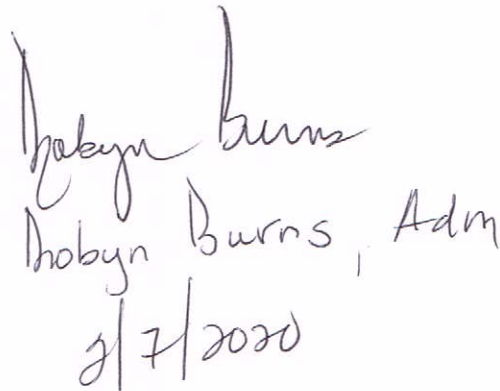 Robyn Burns
Robyn Burns, Adm
2/7/2020